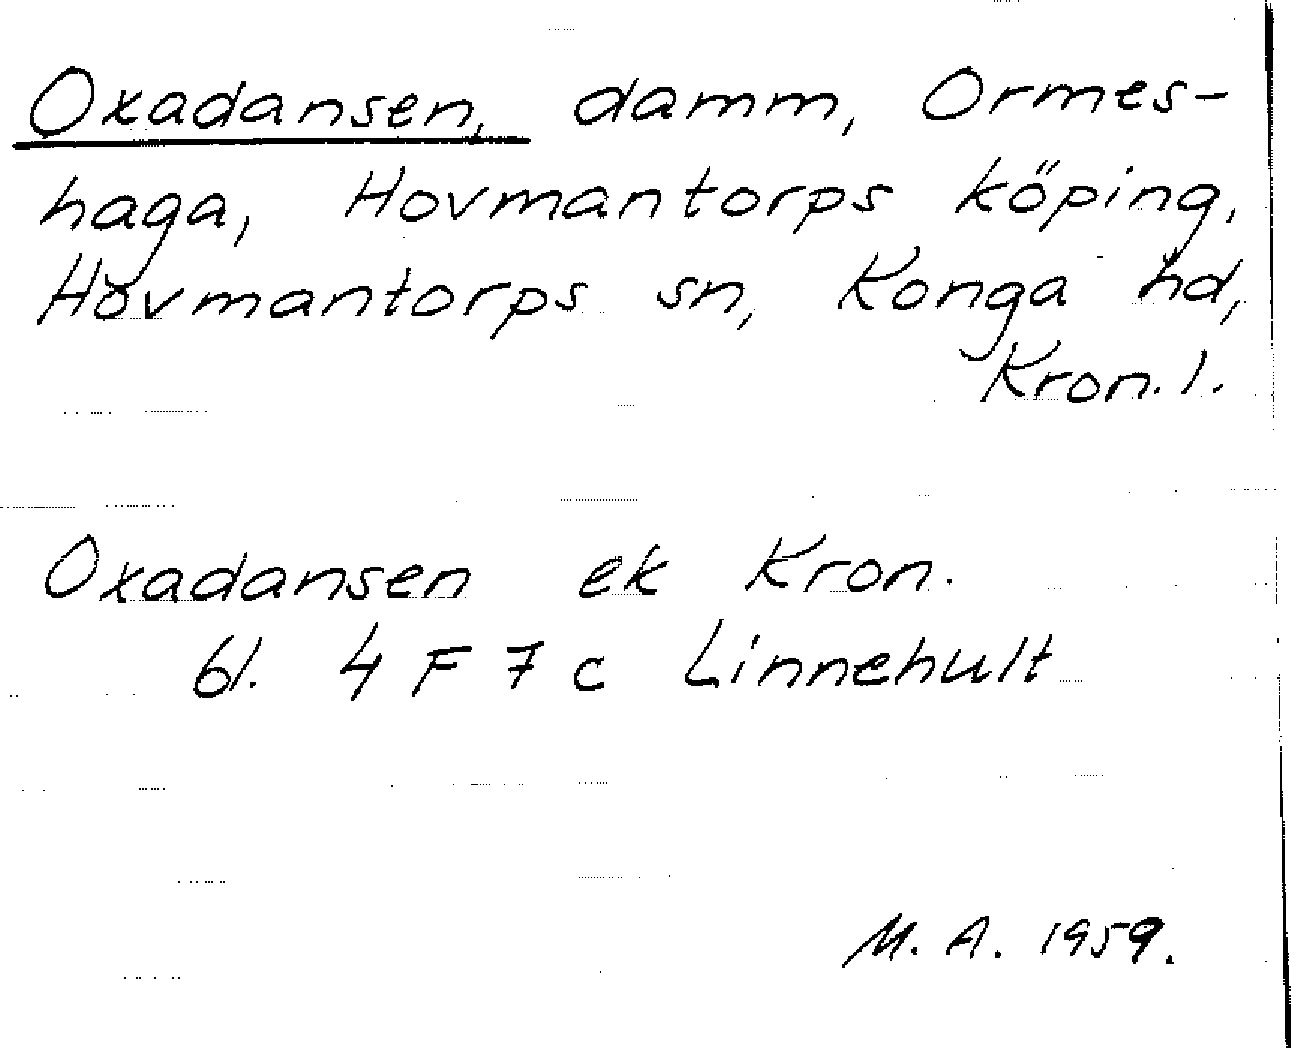 Oxadansen, damm, Ormes-
haga, Hovmantorps köping,
Hovmantorps sn, Konga hd,
Kron. l.
Oxadansen ek Kron.
bl. 4 F 7 c Linnehult
M. A. 1959.